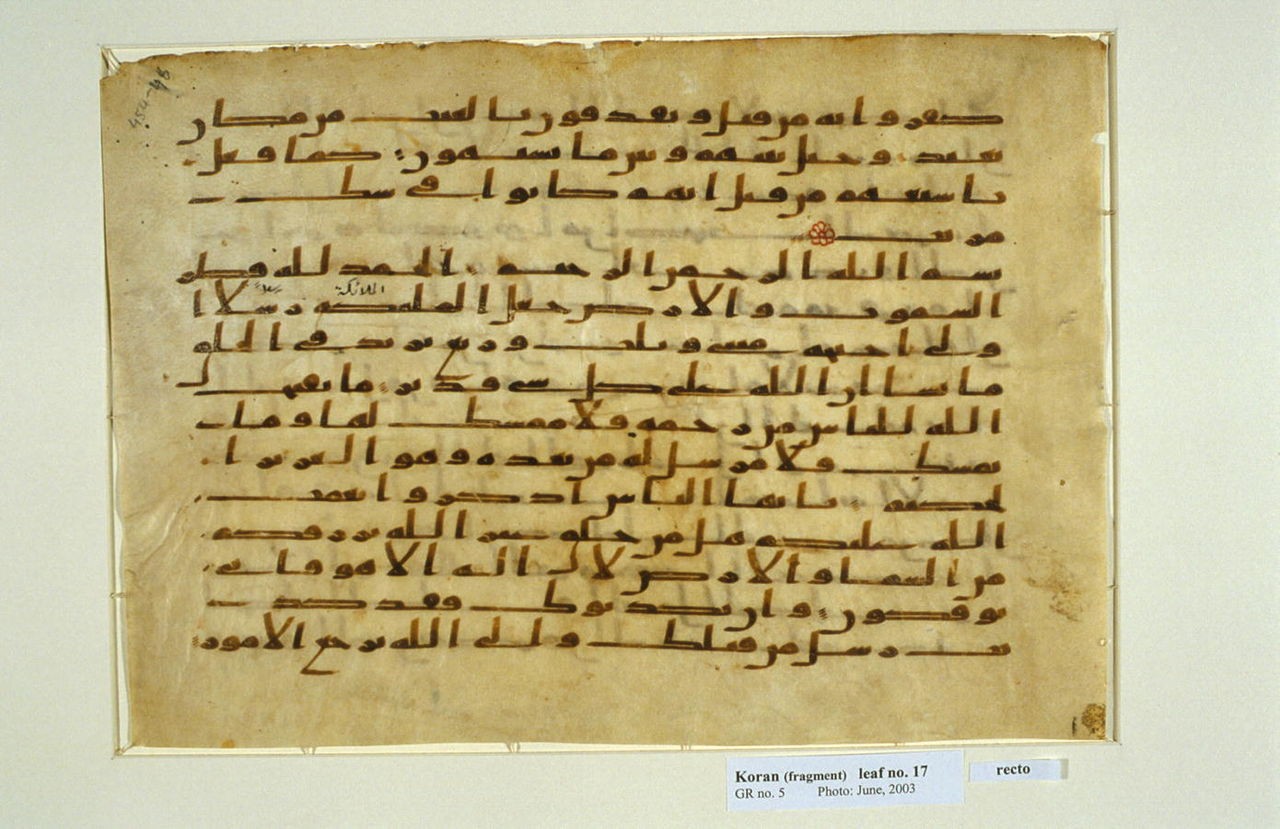 454-48
كفروا به من قبل ويقذفون بالغيب من مكان
بعيد وحيل بينهم وبين ما يشتهون كما فعل
باشيعهم من قبل انهم كانوا في شك
مريب
بسم الله الرحمن الرحيم الحمد لله فطر
الملائكة رسلا
السموت والارض جعل الملئكة رسلا ا
ولى اجنحة مثنى وثلث وربع يزيد في الخلق
ما يشا ان الله على كل شي قدير ما يفتح
الله للناس من رحمة فلا ممسك لها وما
يمسك فلا مرسل له من بعده وهو العزيز ا
لحكيم يايها الناس اذكروا نعمت
الله عليكم هل من خلق غير الله يرزقكم
من السما والارض لا اله الا هو فانى
توفكون وان يكذبوك فقد كذ
بت رسل من قبلك والى الله ترجع الامور
Koran (fragment) leaf no. 17
GR no. 5 Photo: June, 2003
recto